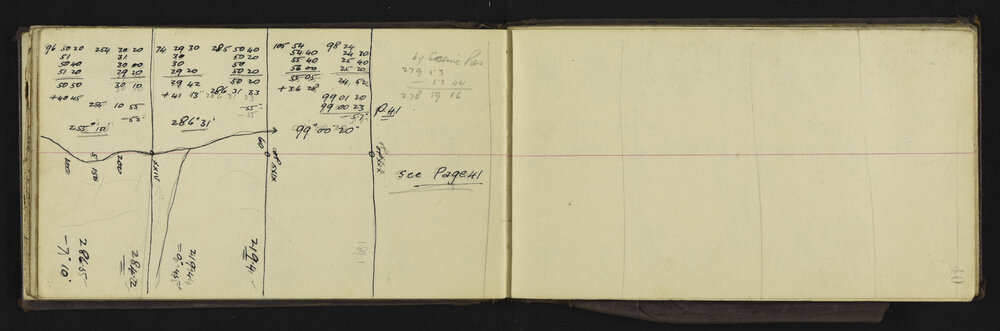 96 50 20 254 30 20 74 29 30 285 50 40 105 54 98 24
51 31 30 50 20 54 40 24 20
50 40 30 00 30 50 55 40 25 40
51 20 29 20 29 20 50 20 56 00 25 20
50 50 30 10 29 42 50 20 55 05 24 52
+40 45 + 41 13 286 31 33 + 36 28
255 10 55 99 01 20
-52 -55 99 00 23
255° 10' 286° 31' -57 P.41
99° 00' 20"
by
279 53
53 44
278 59 16
400 5 150 200 XXIV 60 XXIX
see Page 41
286 55
-7° 10'
284.2
219.44
-0° 45'
219.4
40